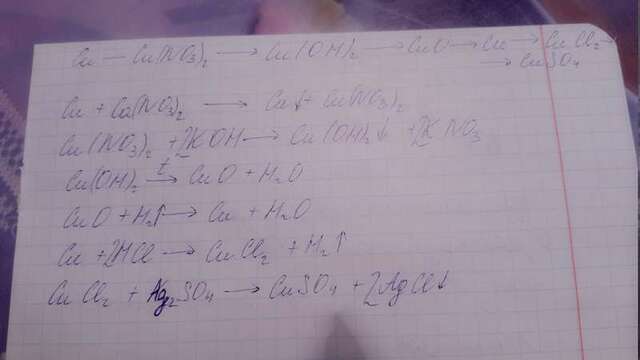 Cu — Cu(NO3)2 → Cu(OH)2 → CuO → Cu → CuCl2 →
→ CuSO4
Cu + Ca(NO3)2 → Ca↓ + Cu(NO3)2
Cu(NO3)2 + 2KOH → Cu(OH)2↓ + 2KNO3
Cu(OH)2 t→ CuO + H2O
CuO + H2↑ → Cu + H2O
Cu + 2HCl → CuCl2 + H2↑
CuCl2 + Ag2SO4 → CuSO4 + 2AgCl↓